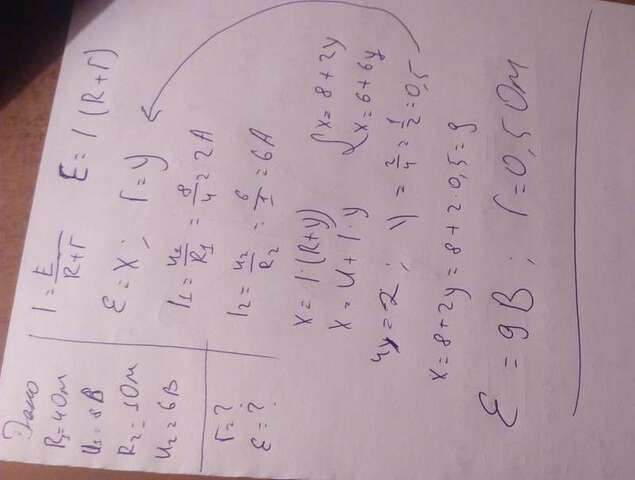 Дано
R₁=4Ом
U₁=8В
R₂=1Ом
U₂=6В
r=?
ε=?
I = E/(R+r) E = I (R+r)
ε = x ; r = y
I₁ = U₁/R₁ = 8/4 = 2A
I₂ = U₂/R₂ = 6/1 = 6A
x = I·(R+y)
x = U + I·y
{x = 8 + 2y
x = 6 + 6y
4y = 2 ; y = 2/4 = 1/2 = 0,5
x = 8+2y = 8 + 2·0,5 = 9
ε = 9В ; r = 0,5 Ом